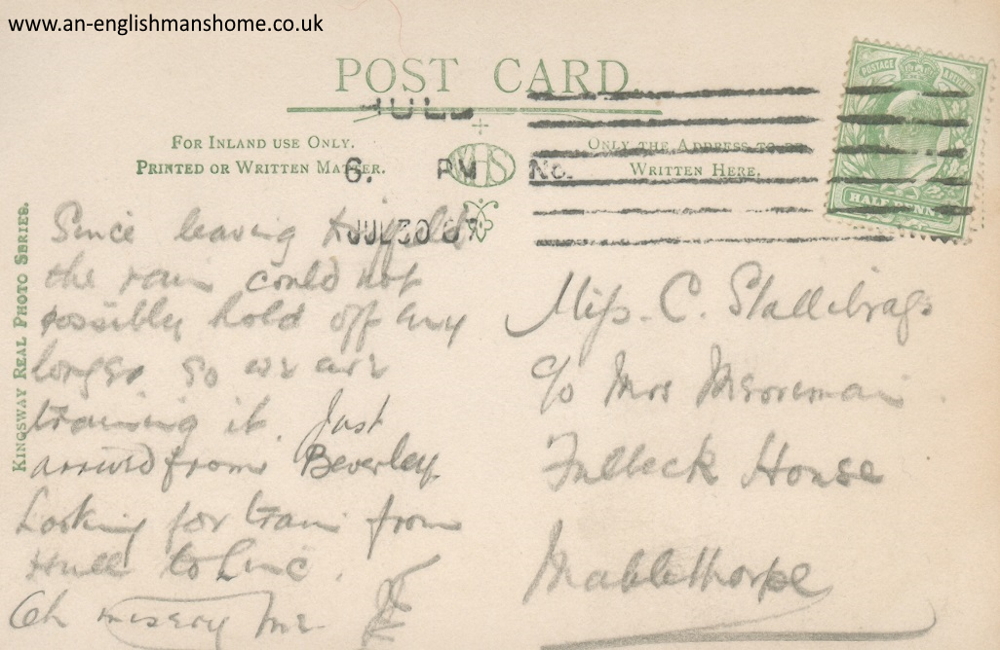 www.an-englishmanshome.co.uk
POST CARD
HULL
FOR INLAND USE ONLY.
PRINTED OR WRITTEN MATTER.
WHS
ONLY THE ADDRESS TO BE
WRITTEN HERE.
6. PM No.
JUL 30 07
HALFPENNY
POSTAGE
KINGSWAY REAL PHOTO SERIES.
Since leaving
the rain could not
possibly hold off any
longer so we are
training it. Just
arrived from Beverley
Looking for train from
Hull to Linc.
Oh misery me.
Miss. C. Stallibrass
c/o Mrs Merriman
Fulbeck House
Mablethorpe